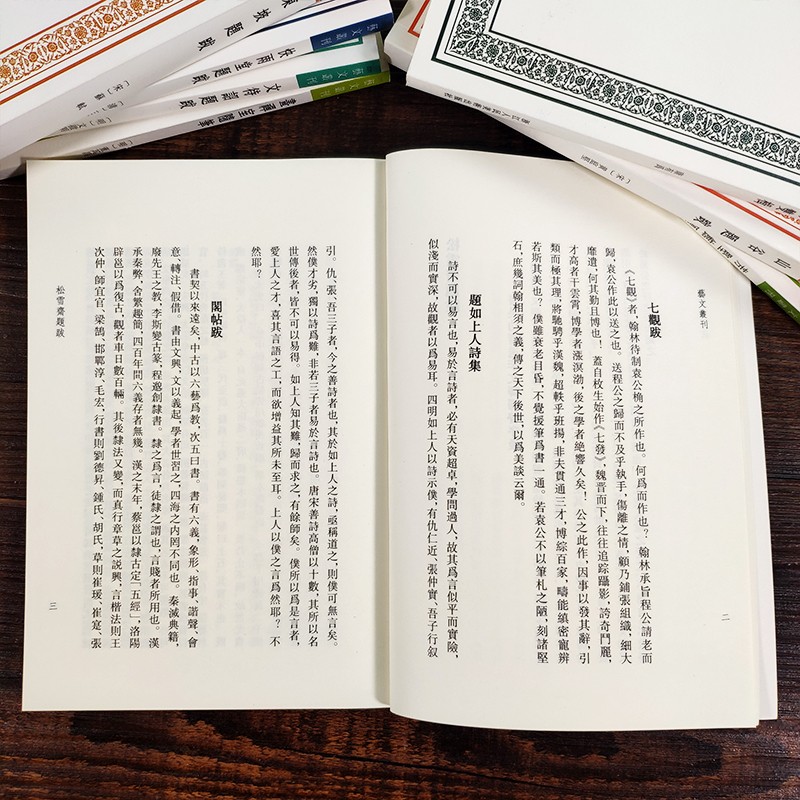 東坡題跋
藝文叢刊
藝文叢刊
文待詔題跋
畫禪室隨筆
藝文叢刊
七觀跋
《七觀》者，翰林待制袁公桷之所作也。何爲而作也？翰林承旨程公請老而
歸，袁公作此以送之也。送程公之歸而不及乎執手，傷離之情，顧乃鋪張組織，細大
靡遺，何其勤且博也！蓋自枚生始作《七發》，魏晉而下，往往追踪躡影，誇奇鬥麗，
才高者干雲霄，博學者漲溟渤，後之學者絶響久矣！公之此作，因事以發其辭，引
類而極其理，將馳騁乎漢魏，超軼乎班揚，非夫貫通三才，博綜百家，疇能縝密寵辨
若斯其美也？僕雖衰老目昏，不覺援筆爲書一通。若袁公不以筆札之陋，刻諸堅
石，庶幾詞翰相須之義，傳之天下後世，以爲美談云爾。
題如上人詩集
詩不可以易言也，易於言詩者，必有天資超卓，學問過人，故其爲言似平而實險，
似淺而實深，故觀者以爲易耳。四明如上人以詩示僕，有仇仁近、張仲實、吾子行叙
二
引。仇、張、吾三子者，今之善詩者也，其於如上人之詩，亟稱道之，則僕可無言矣。
然僕才劣，獨以詩爲難，非若三子者易於言詩也。唐宋善詩高僧以十數，其所以名
世傳後者，皆不可以易得。如上人知其難，歸而求之，有餘師矣。僕所以爲是言者，
愛上人之才，喜其言語之工，而欲增益其所未至耳。上人以僕之言爲然耶？不
然耶？
閣帖跋
書契以來遠矣，中古以六藝爲教，次五曰書。書有六義，象形、指事、諧聲、會
意、轉注、假借。書由文興，文以義起，學者世習之，四海之内罔不同也。秦滅典籍，
廢先王之教，李斯變古篆，程邈創隸書。隸之爲言，徒隸之謂也，言賤者所用也。漢
承秦弊，舍繁趣簡，四百年間六義存者無幾。漢之末年，蔡邕以隸古定「五經」，洛陽
辟邕以爲復古，觀者車日數百輛。其後隸法又變，而真行章草之説興，言楷法則王
次仲、師宜官、梁鵠、邯鄲淳、毛宏，行書則劉德昇、鍾氏、胡氏，草則崔瑗、崔寔、張
松雪齋題跋
三